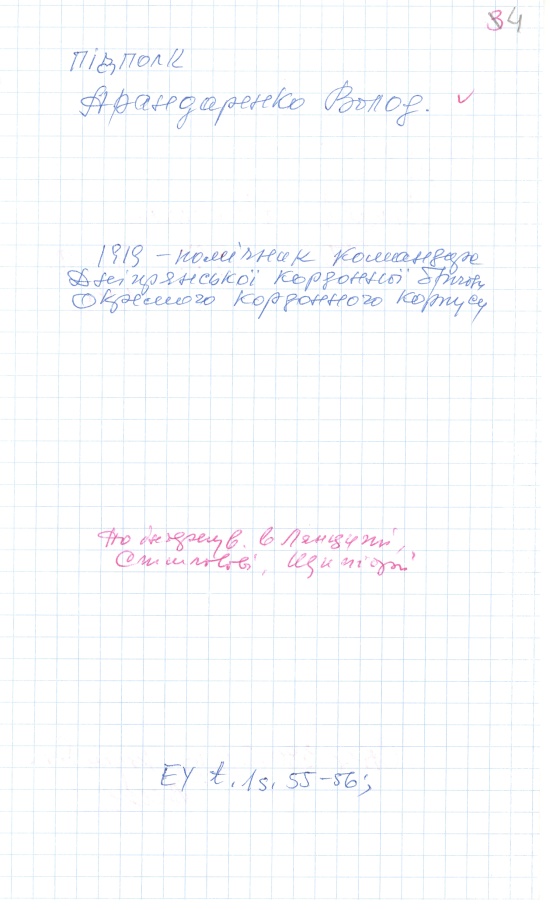 34
підполк
Арандаренко Волод. ✓
1919 – помічник командира
Дністрянської кордонної бригади
Окремого кордонного корпусу
По інтернув. в Ланцуті,
Стшалкові, Щипіорні
ЕУ t. 1 s. 55-56;